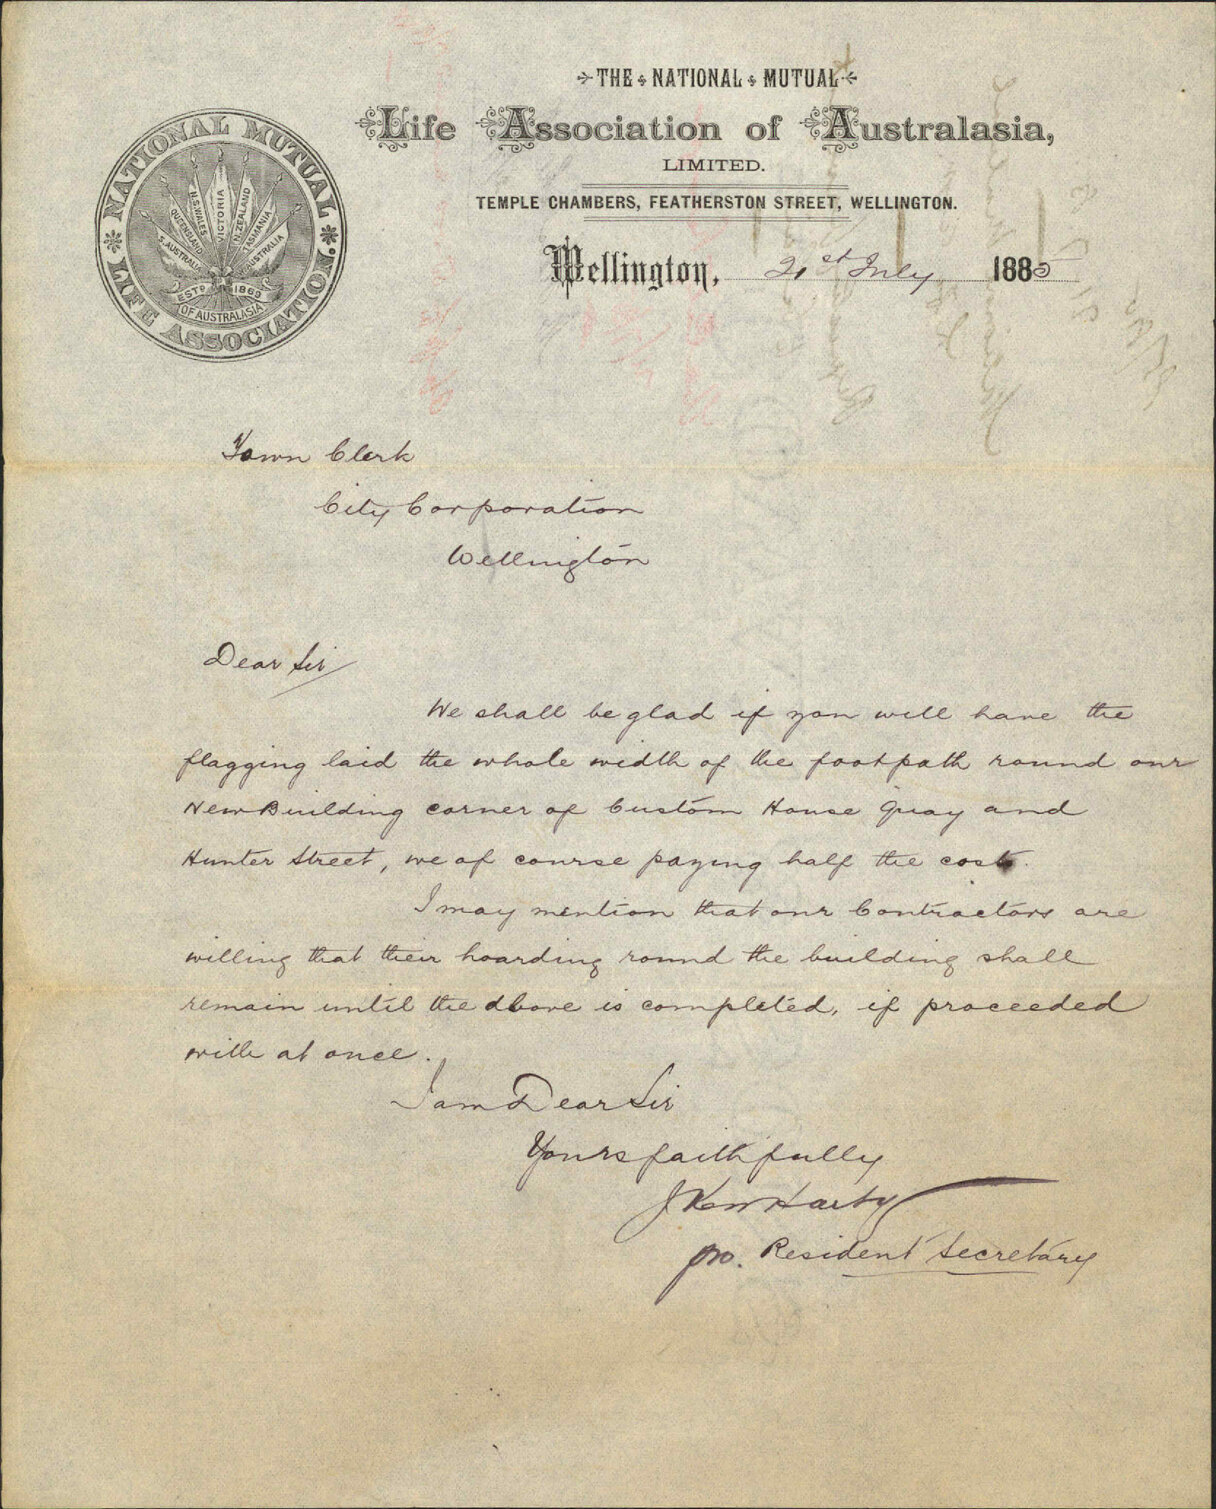 THE NATIONAL MUTUAL
Life Association of Australasia,
LIMITED.
TEMPLE CHAMBERS, FEATHERSTON STREET, WELLINGTON.
NATIONAL MUTUAL
LIFE ASSOCIATION
OF AUSTRALASIA
ESTD 1869
S. AUSTRALIA
QUEENSLAND
N.S. WALES
VICTORIA
N. ZEALAND
TASMANIA
AUSTRALIA
Wellington, 21st July 1885
Town Clerk
City Corporation
Wellington
Dear Sir
We shall be glad if you will have the
flagging laid the whole width of the footpath round our
New Building corner of Custom House Quay and
Hunter Street, we of course paying half the cost.
I may mention that our Contractors are
willing that their hoarding round the building shall
remain until the above is completed, if proceeded
with at once.
I am Dear Sir
Yours faithfully
pro. Resident Secretary